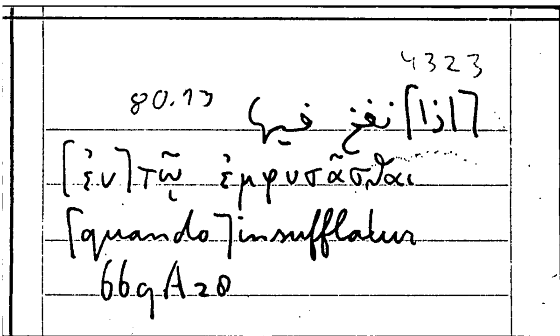 4323
80.13 [اذا] نفخ فيها
[ἐν] τῷ ἐμφυσᾶσθαι
[quando] insufflatur
669A20